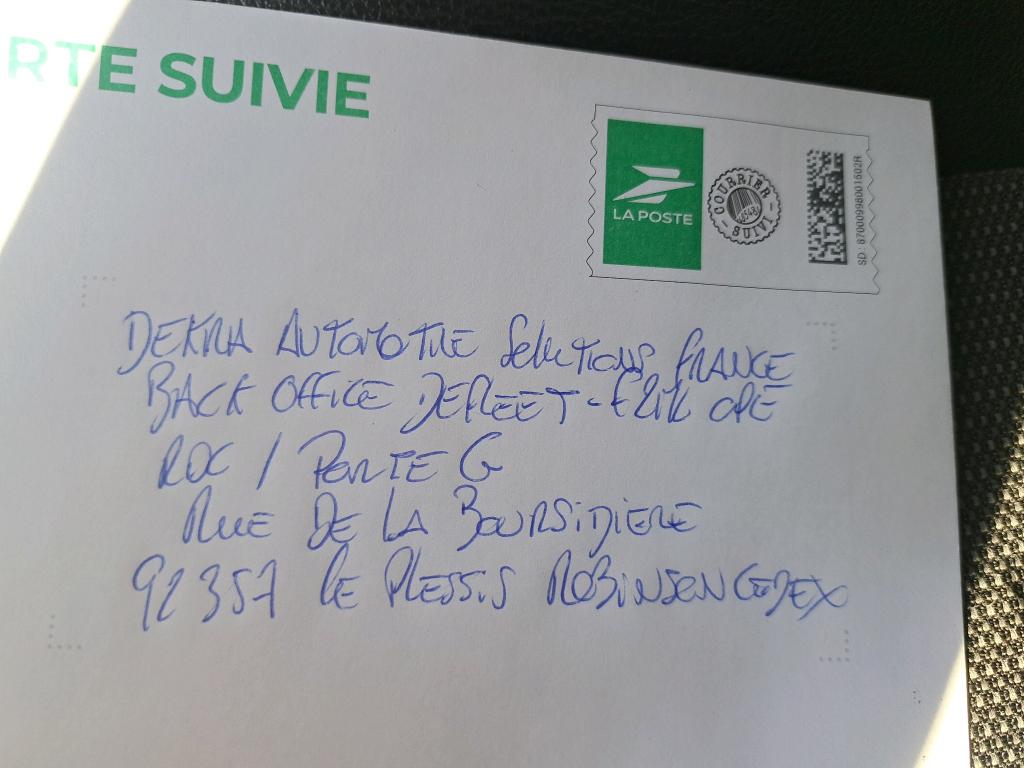 RTE SUIVIE
LA POSTE
COURRIER SUIVI
SD : 87000998001502R
DEKRA AUTOMOTIVE Solutions FRANCE
BACK OFFICE DEFLEET -
ROC / PORTE G
RUE DE LA BOURSIDIERE
92357 Le PLESSIS ROBINSON CEDEX